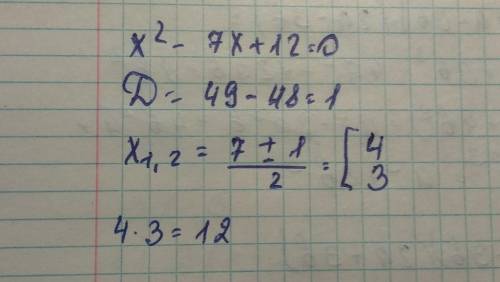 x² - 7x+12=0
D = 49-48=1
x₁,₂ = (7 ± 1)/2 = [4 3
4·3=12